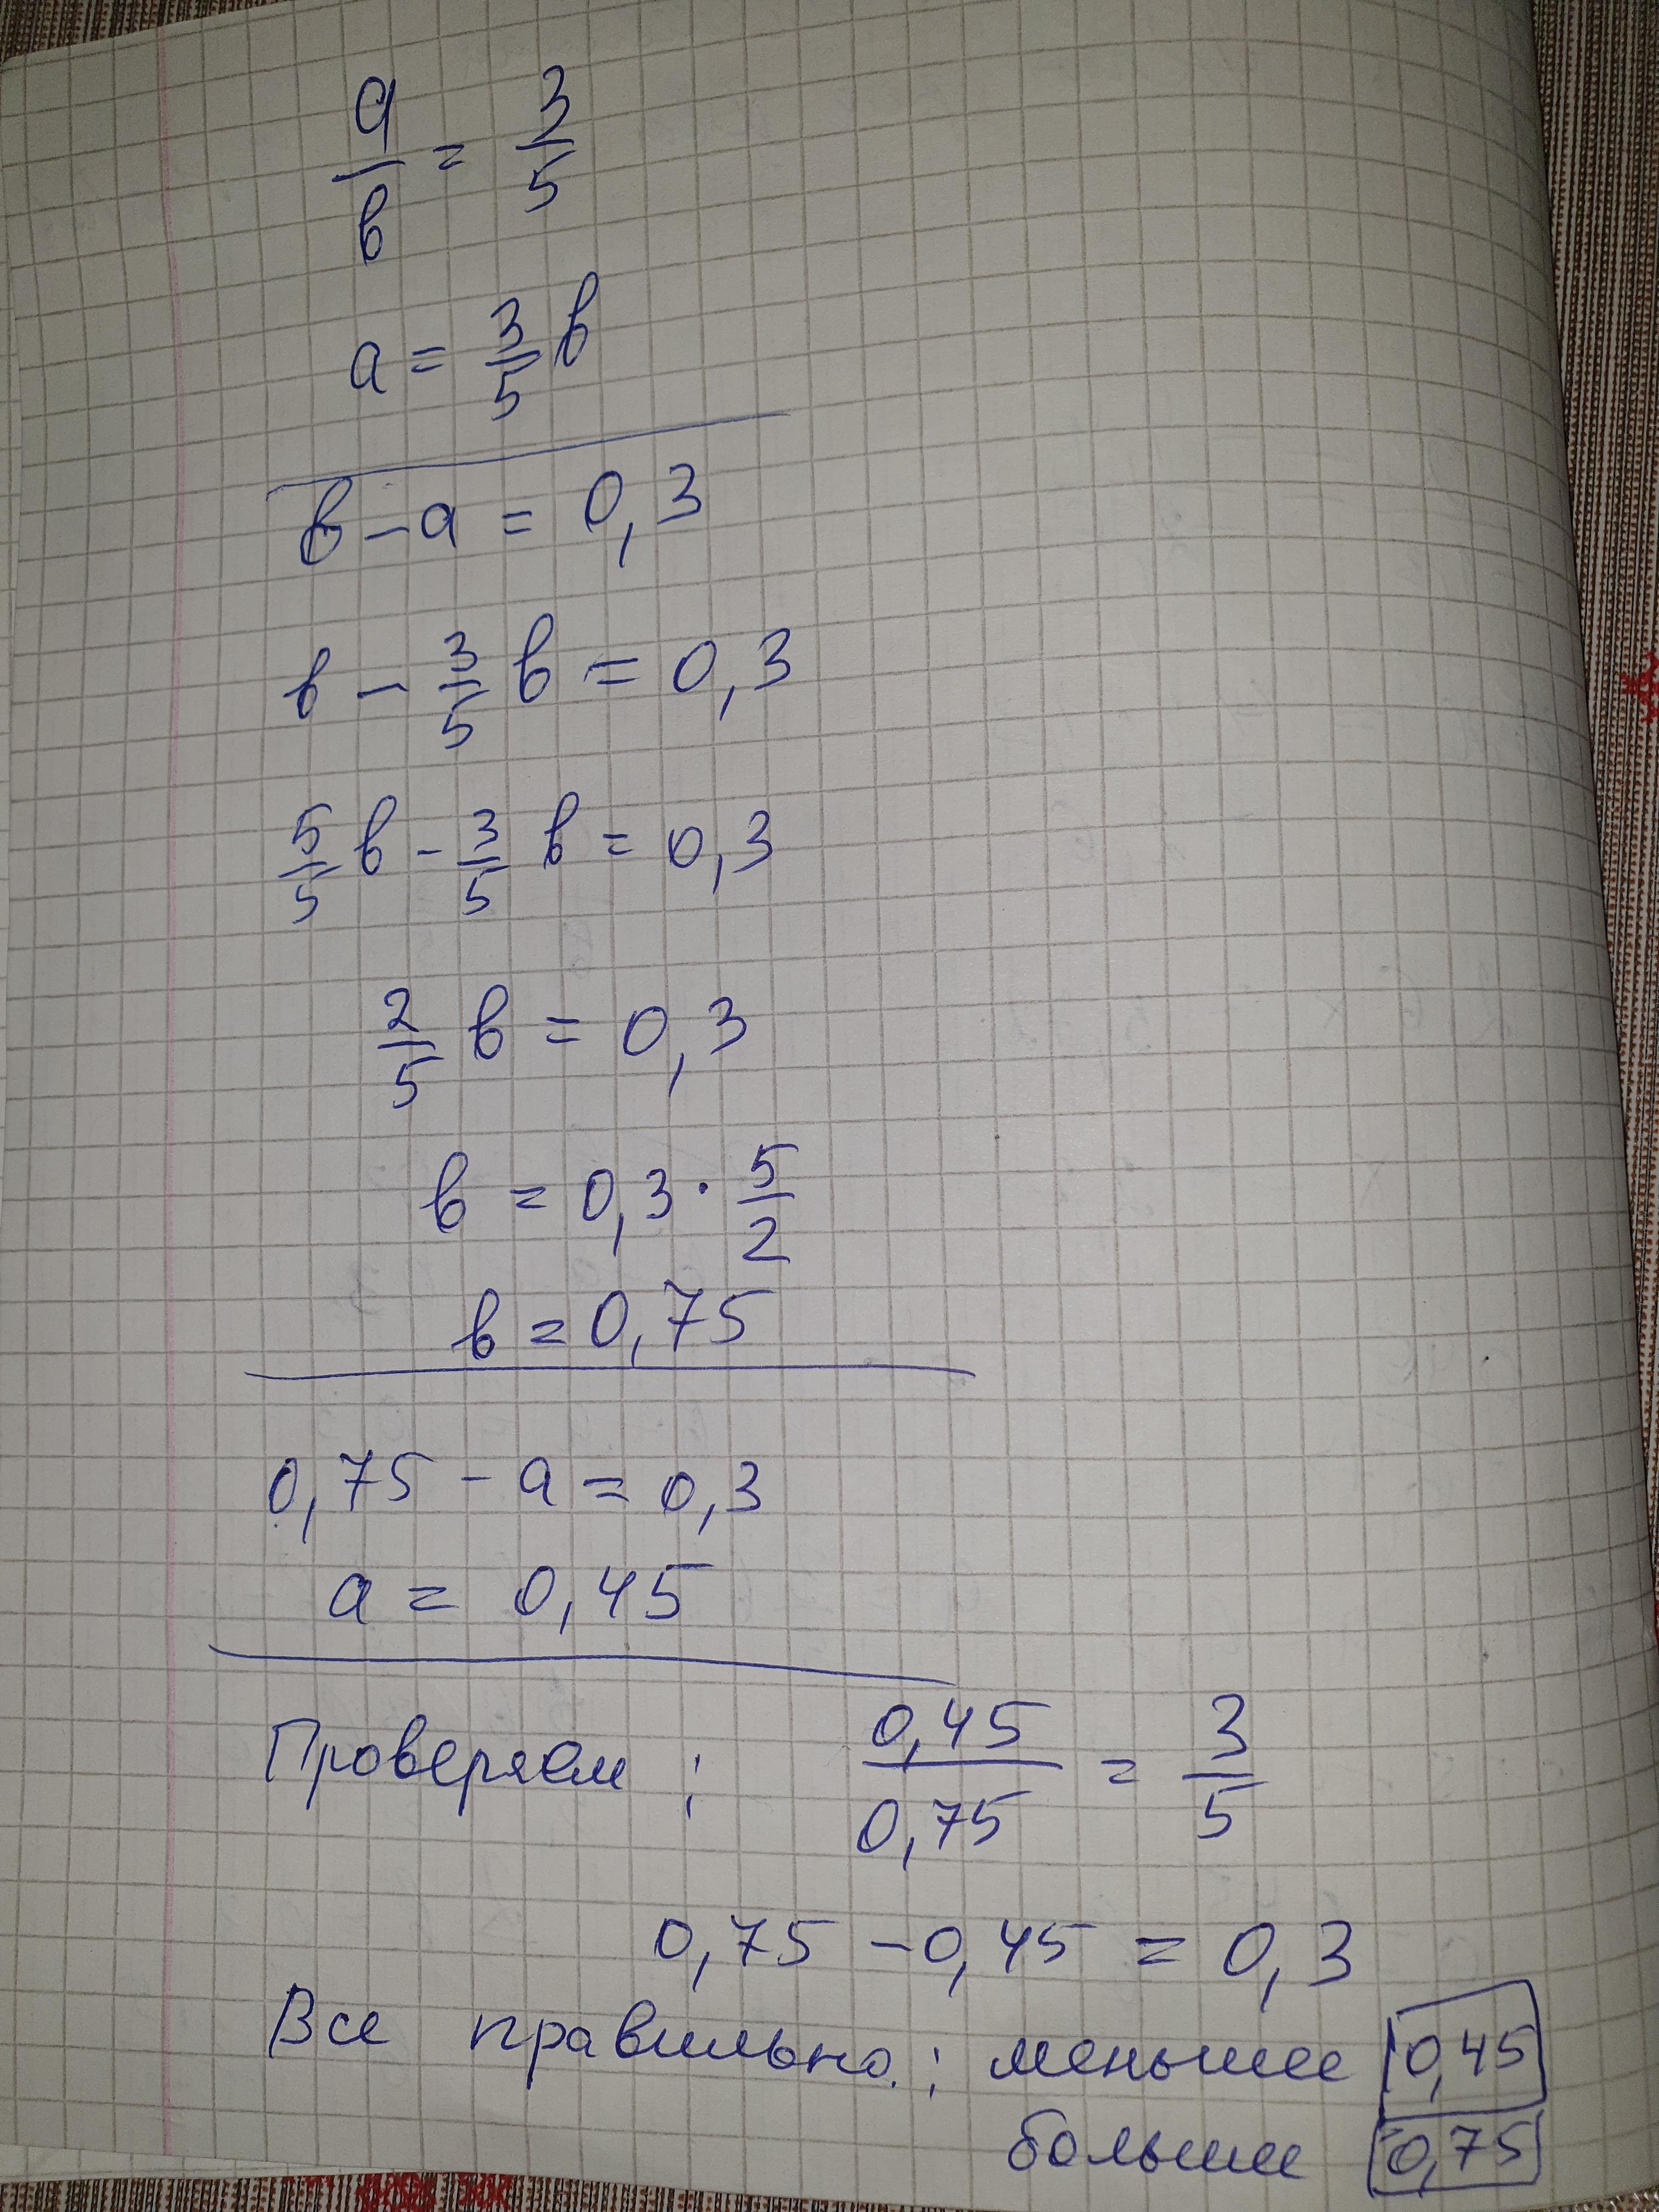 a/в = 3/5
a = 3/5 в
в - a = 0,3
в - 3/5 в = 0,3
5/5 в - 3/5 в = 0,3
2/5 в = 0,3
в = 0,3 · 5/2
в = 0,75
0,75 - a = 0,3
a = 0,45
Проверяем: 0,45/0,75 = 3/5
0,75 - 0,45 = 0,3
Все правильно.: меньшее 0,45
большее 0,75